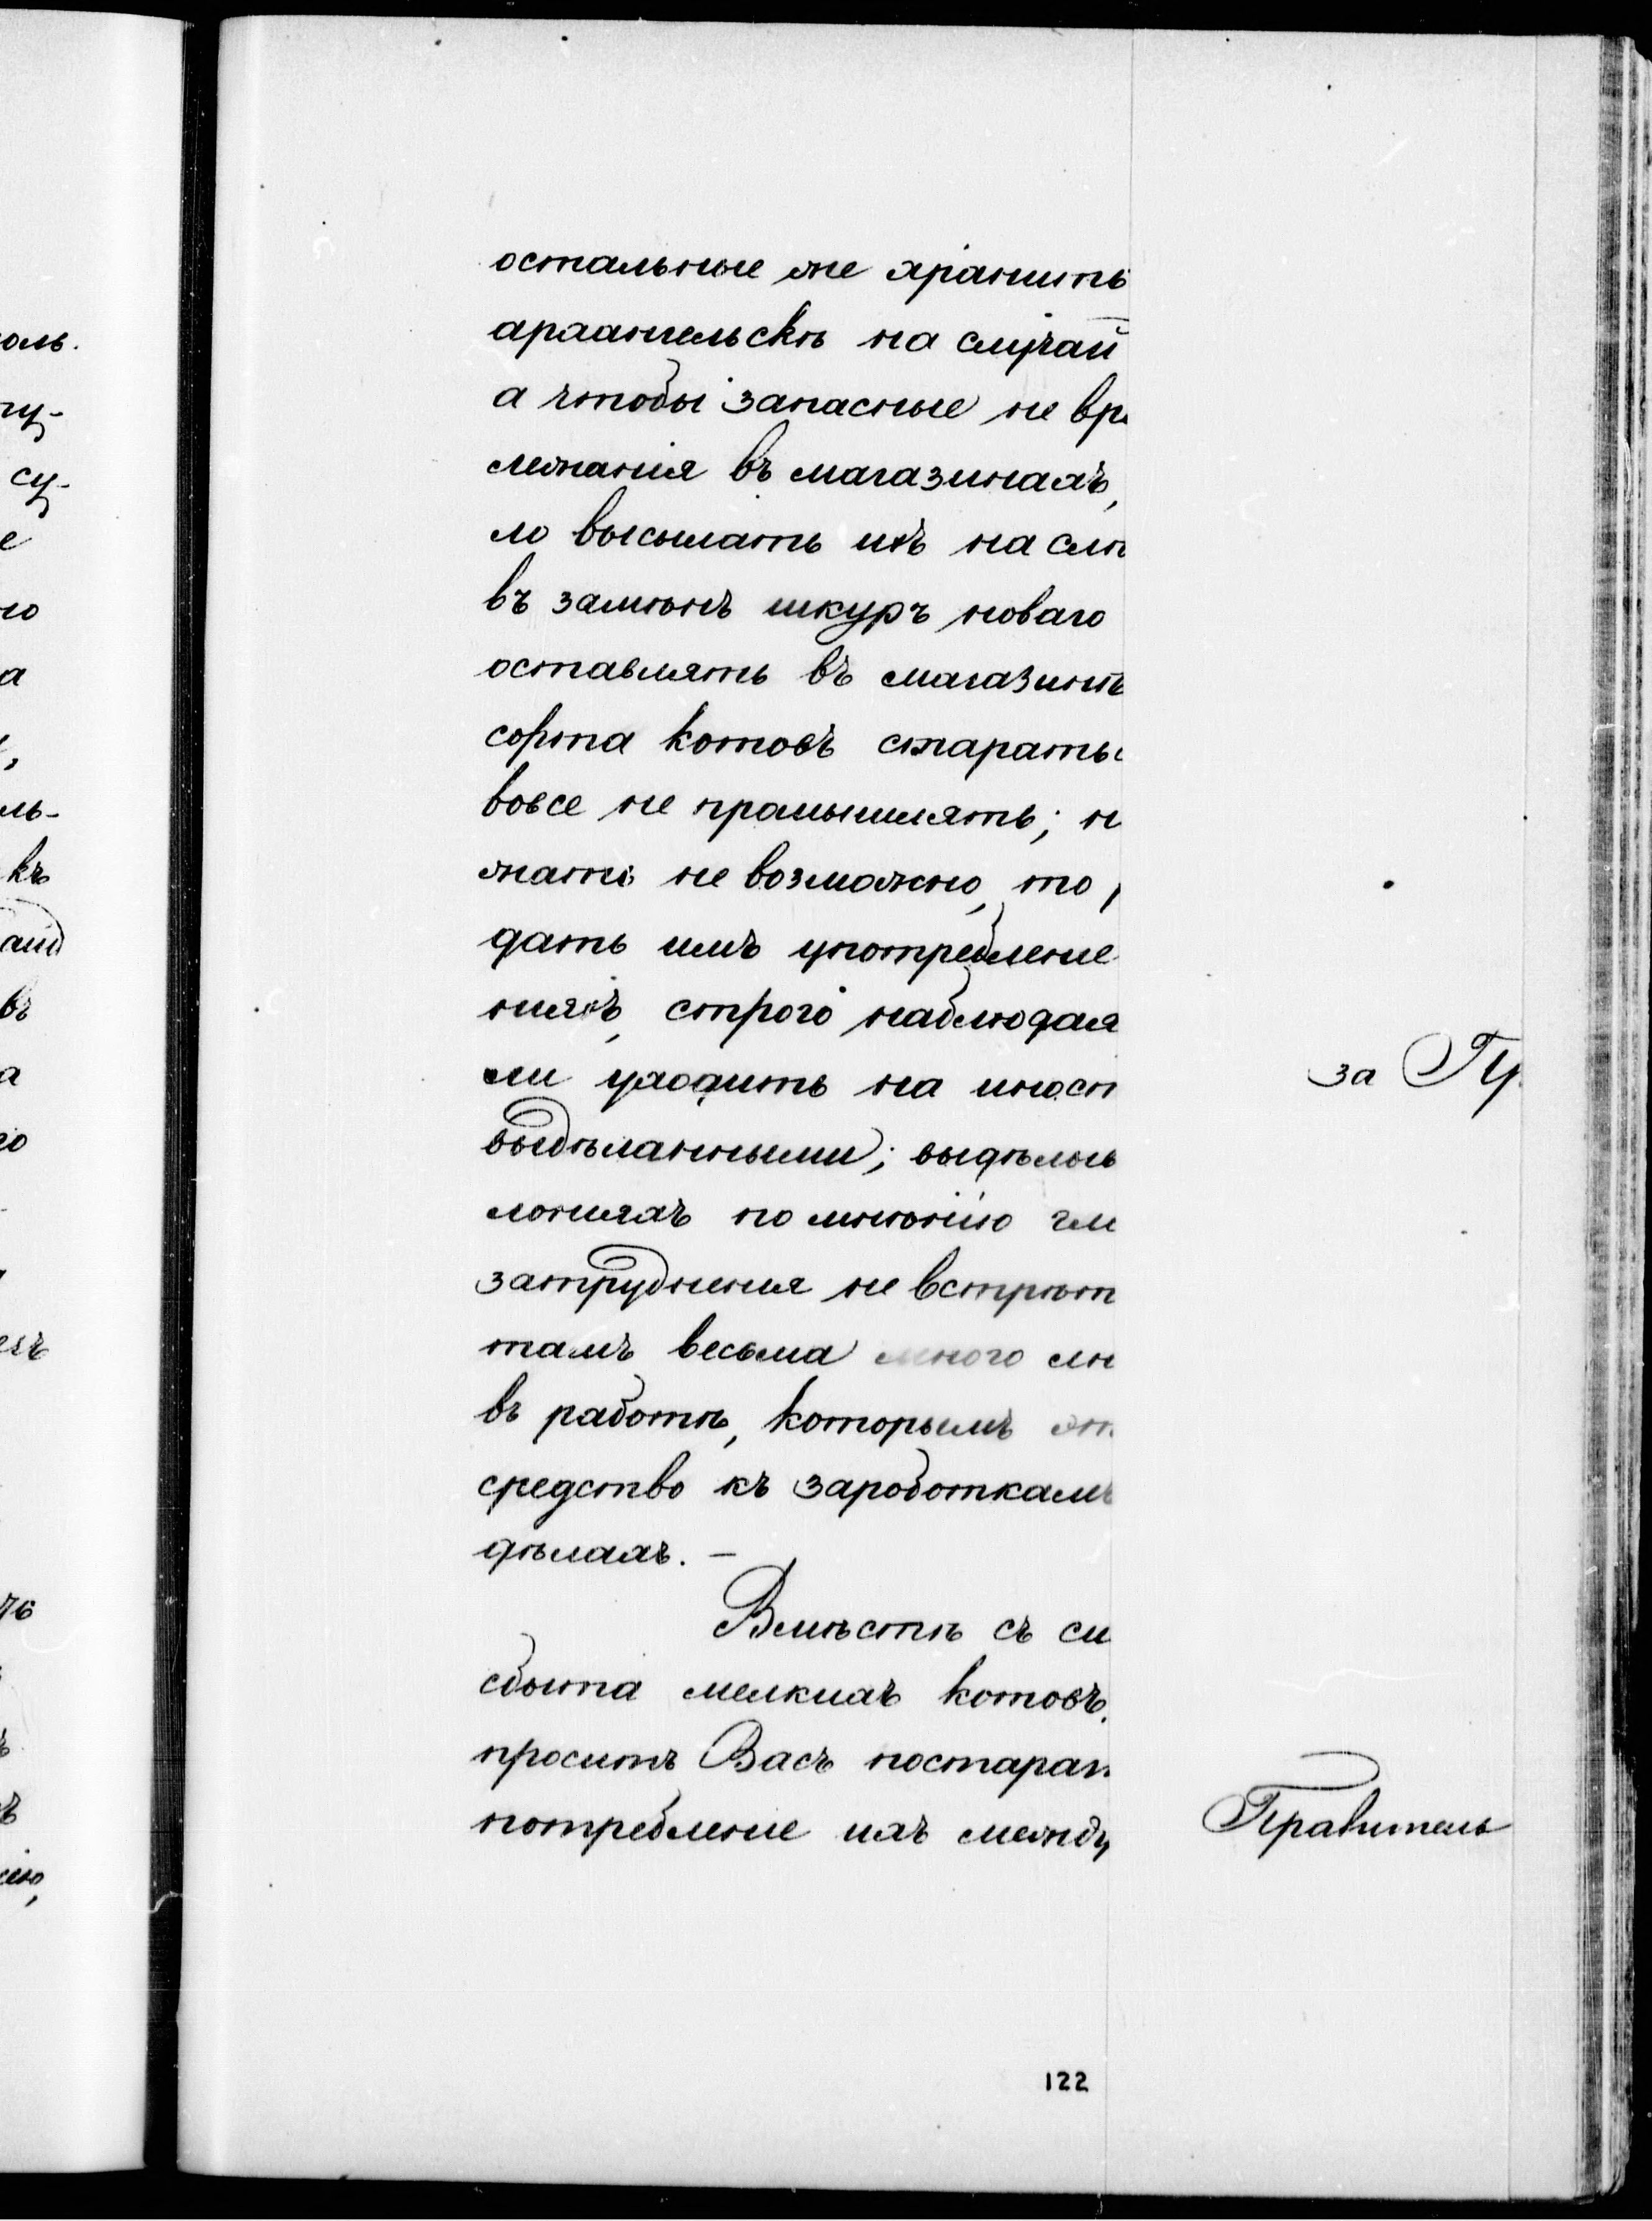 остальные же хранить
архангельскѣ на случай
а чтобы запасные не
лежанія въ магазинахъ,
ло высылать ихъ на
въ замѣнъ шкуръ новаго
оставлять въ магазинѣ
сорта котовъ старатьс
вовсе не промышлять; н
жать не возможно, то
дать имъ употребление
ніяхъ, строго наблюдая
ли уходить на
выдѣланными; выдѣлыв
лоніяхъ по мнѣнію
затрудненія не встрѣт
тамъ весьма много
въ работѣ, которымъ
средство къ зароботкамъ
дѣлахъ. —
Вмѣстѣ съ си
сбыта мелкихъ котовъ,
проситъ Васъ постарат
потребление ихъ между
за Пр
Правитель
122
оль.
су-
е
го
а
ль-
къ
въ
а
го